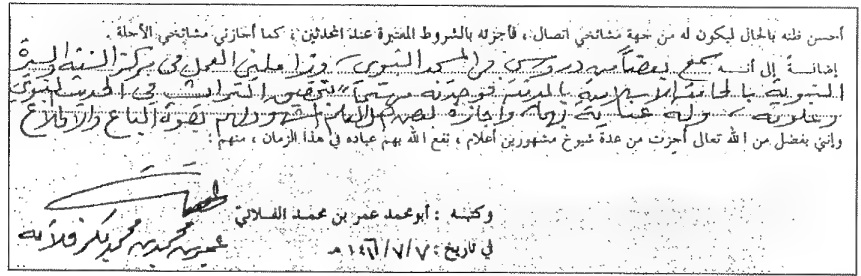 أحسن ظنه بالحال ليكون له من جهة مشائخي اتصال ، فأجزته بالشروط المعتبرة عند المحدثين ، كما أجازني مشائخي الأجلة .
إضافة إلى أنه سمع بعضاً من دروسي في المسجد النبوي، العمل في مركز السنة والسيرة
النبوية بالجامعة الإسلامية بالمدينة فوجدته في الحديث النبوي
وعلومه، وله عناية بها، وإجازة المشهود لهم بقوة الباع والاطلاع
وإنني بفضل من الله تعالى أجزت من عدة شيوخ مشهورين أعلام ، نفع الله بهم عباده في هذا الزمان ، منهم :
وكتبه : أبو محمد عمر بن محمد الفلاني
عمر بن محمد بن محمد بكر فلاته
في تاريخ : ١٤٦/٧/٧ هـ